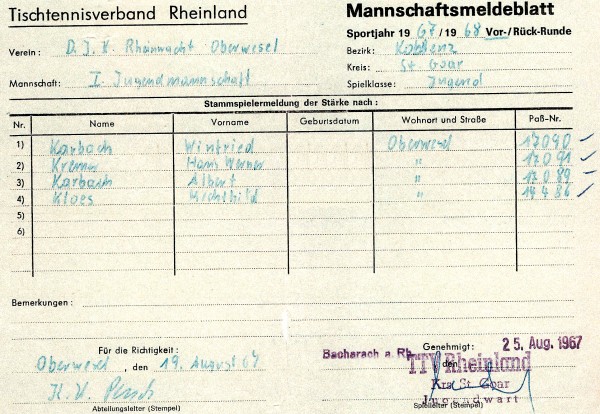 Tischtennisverband Rheinland
Mannschaftsmeldeblatt
Sportjahr 1967/1968 Vor-/Rück-Runde
Verein: D.J.K. Rheinwacht Oberwesel
Bezirk: Koblenz
Kreis: St. Goar
Mannschaft: I. Jugendmannschaft
Spielklasse: Jugend
Stammspielermeldung der Stärke nach:
Nr. Name Vorname Geburtsdatum Wohnort und Straße Paß-Nr.
1) Karbach Winfried Oberwesel 17090
2) Kremer Hans Werner " 17091
3) Karbach Albert " 17089
4) Kloes Mechthild " 14486
5)
6)
Bemerkungen:
Für die Richtigkeit:
Genehmigt: 25. Aug. 1967
Oberwesel, den 19. August 67
Bacharach a. Rh. den
TTV Rheinland
Krs St. Goar
Jugendwart
Abteilungsleiter (Stempel)
Spielleiter (Stempel)